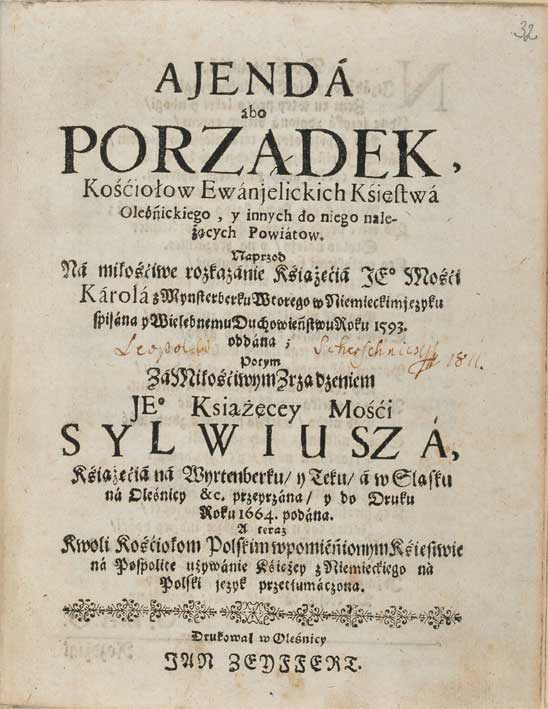 32
AJENDÁ
ábo
PORZĄDEK,
Kośćiołow Ewánjelickich Kśięstwá
Oleśńickiego, y innych do niego nale-
żących Powiátow.
Naprzod
Ná miłośćiwe rozkazánie Książęćiá JEº Mośći
Károlá z Mynsterberku Wtorego w Niemieckim języku
spisána y Wielebnemu Duchowieństwu Roku 1593.
oddána;
Leopoldi Scherschnick 1811.
Potym
Zá Miłośćiwym Zrządzeniem
JEº Książęcey Mośći
SYLWIUSZÁ,
Książęćiá ná Wyrtenberku/ y Teku/ á w Sląsku
ná Oleśnicy &c. przeyrzána/ y do Druku
Roku 1664. podána.
A teraz
Kwoli Kośćiołom Polskim w pomieńionym Księstwie
ná Pospolite używánie Księżey z Niemieckiego ná
Polski język przetłumáczona.
Drukował w Oleśnicy
JAN ZEYFFERT.